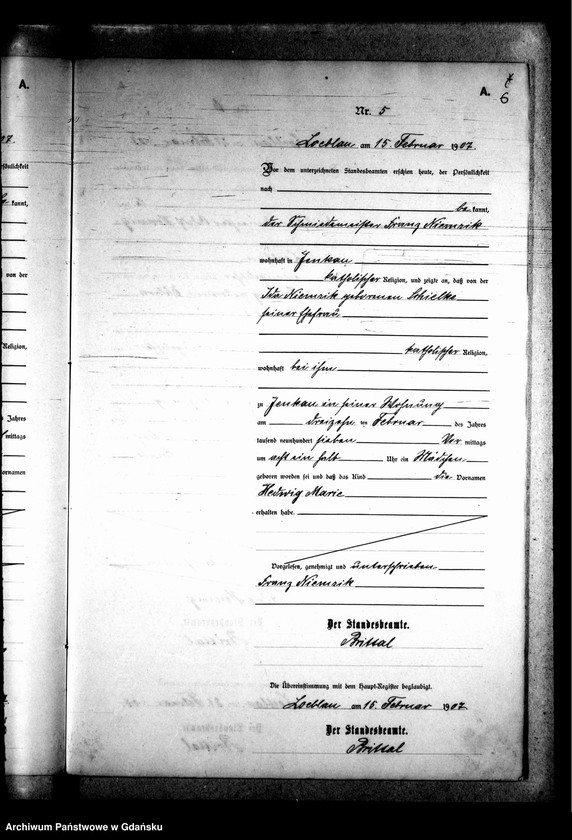 A.
A.
6
Nr. 5
Loeblau am 15 Februar 1907.
Vor dem unterzeichneten Standesbeamten erschien heute, der Persönlichkeit
nach
bekannt,
der Schmiedemeister Franz Niemzik
wohnhaft in Jenkau
katholischer Religion, und zeigte an, daß von der
Ida Niemzik geborenen Schielke
seiner Ehefrau
katholischer Religion,
wohnhaft bei ihm
zu Jenkau in seiner Wohnung
am dreizehn ten Februar des Jahres
tausend neunhundert sieben Vor mittags
um acht ein halb Uhr ein Mädchen
geboren worden sei und daß das Kind die Vornamen
Hedwig Marie
erhalten habe.
Vorgelesen, genehmigt und unterschrieben
Franz Niemzik
Der Standesbeamte.
Brittal
Die Übereinstimmung mit dem Haupt-Register beglaubigt.
Loeblau am 15. Februar 1907
Der Standesbeamte.
Brittal
Archiwum Państwowe w Gdańsku